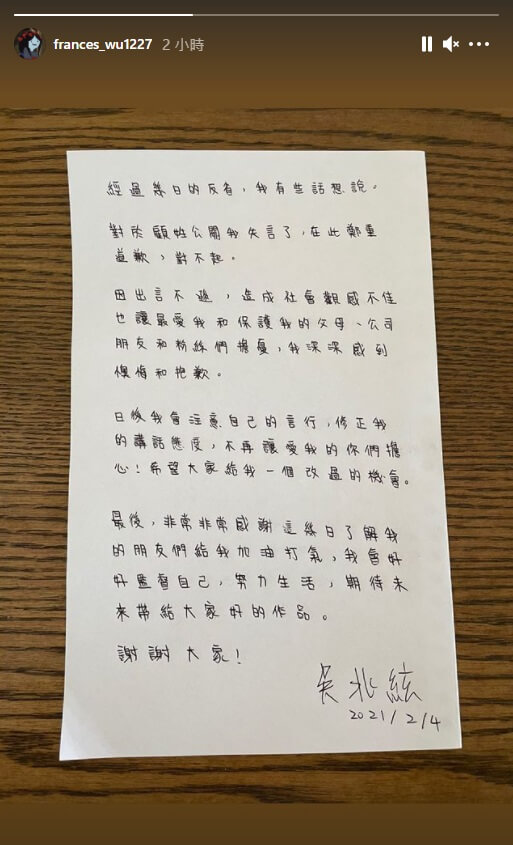 frances_wu1227 2 小時
經過幾日的反省，我有些話想說。
對於顧姓公關我失言了，在此鄭重
道歉，對不起。
因出言不遜，造成社會觀感不佳
也讓最愛我和保護我的父母、公司
朋友和粉絲們擔憂，我深深感到
懊悔和抱歉。
日後我會注意自己的言行，修正我
的講話態度，不再讓愛我的你們擔
心！希望大家給我一個改過的機會。
最後，非常非常感謝這幾日了解我
的朋友們給我加油打氣，我會好
好監督自己，努力生活，期待未
來帶給大家好的作品。
謝謝大家！
吳兆絃
2021/2/4